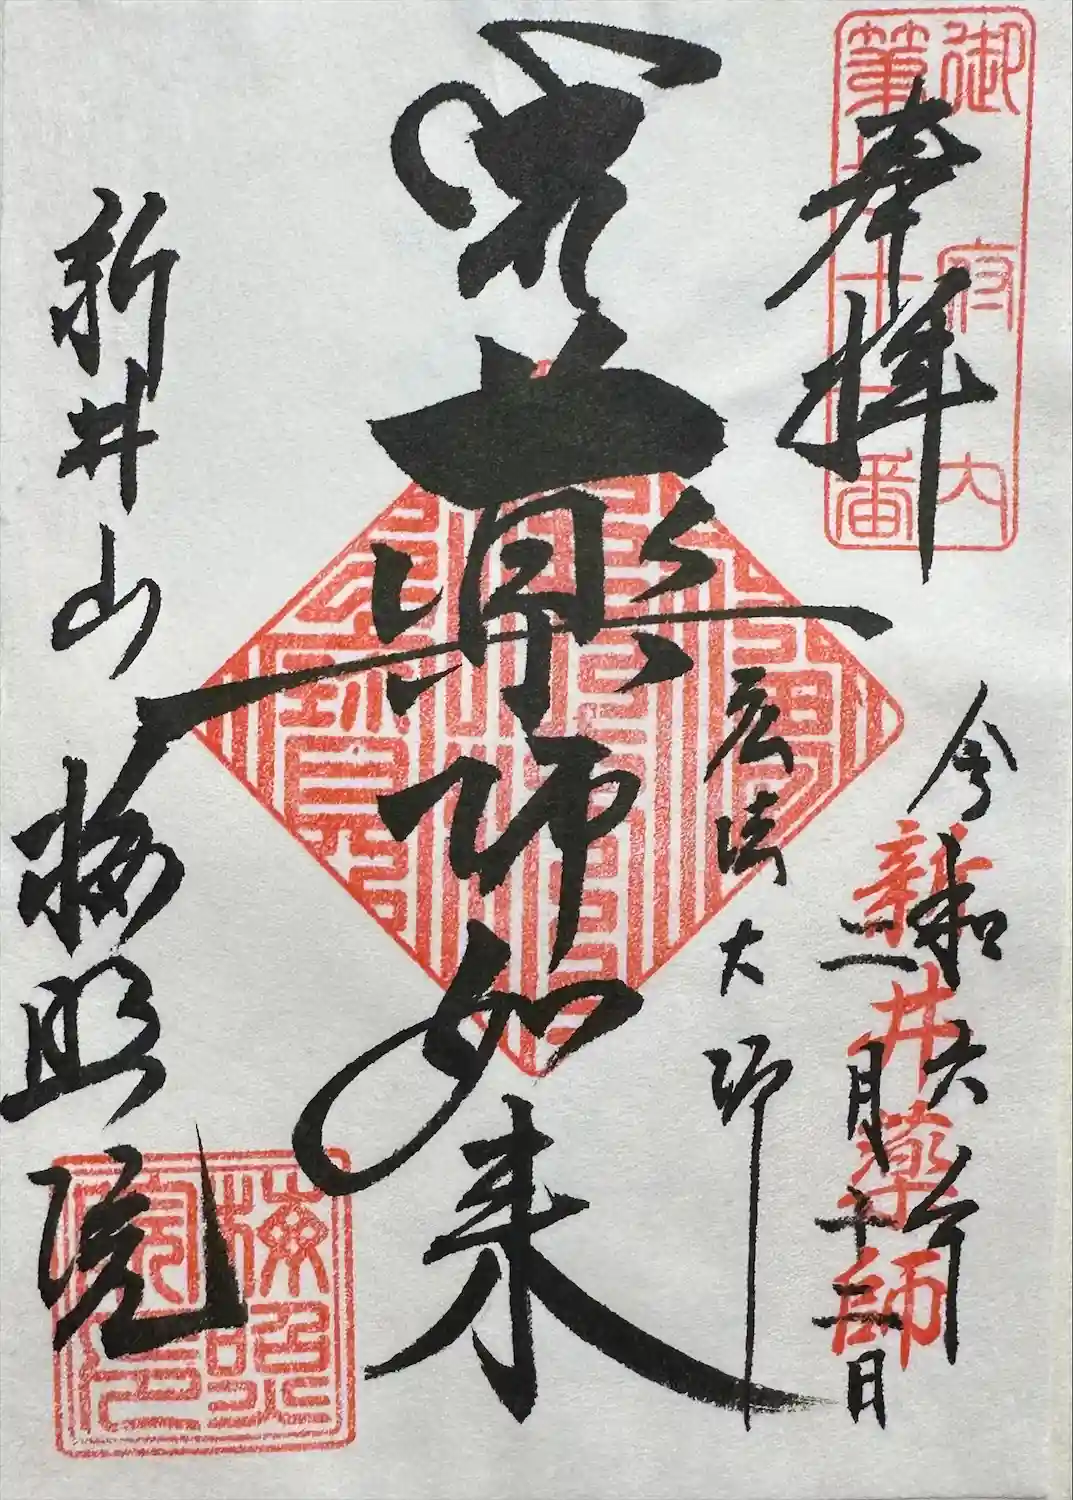 御府内
第七十一番
奉拝
令和六年
二月十二日
新井薬師
弘法大師
藥師如来
新井山
梅照院
梅照
院印